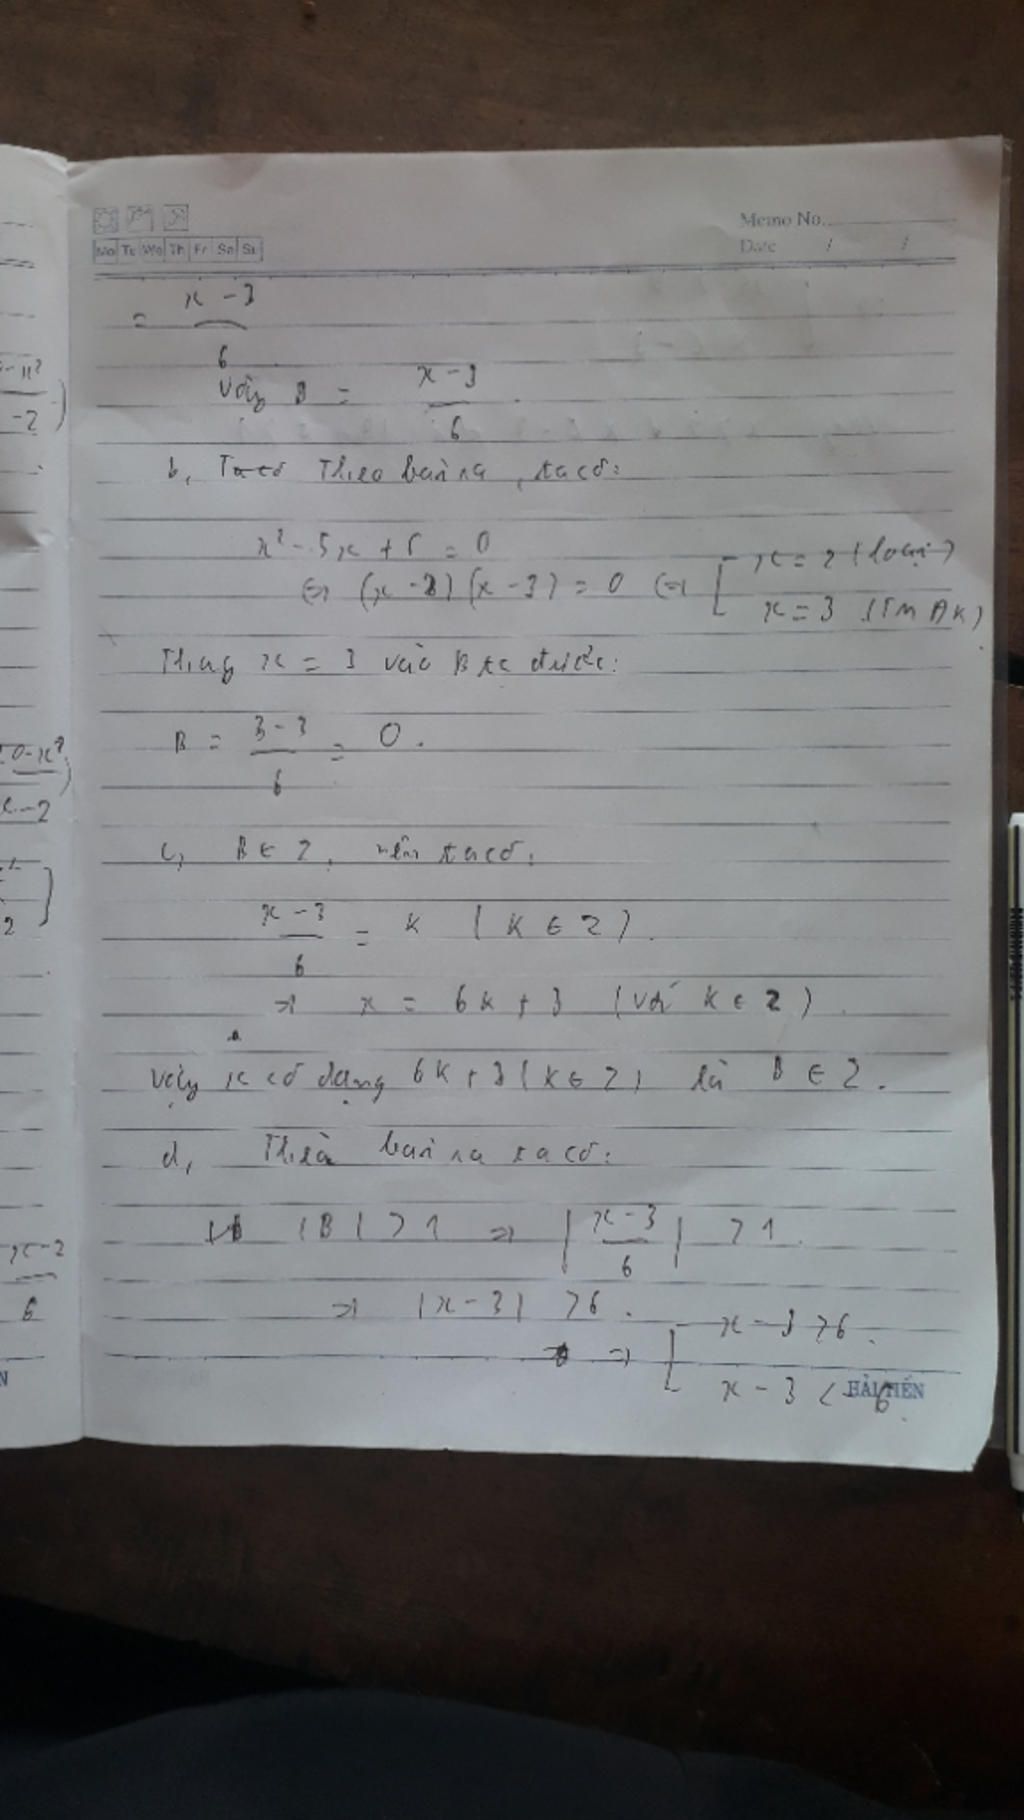 Memo No.
Mo Tu We Th Fr Sa Su
Date / /
= x - 3
6
Vậy B = x - 3
6
b, Ta có Theo bài ra, ta có:
x² - 5x + 6 = 0
⇔ (x - 2) (x - 3) = 0 ⇔ [ x = 2 (loại)
x = 3 (TM ĐK)
Thay x = 3 vào B ta được:
B = 3 - 3 = 0.
6
c, B ∈ Z, nên ta có:
x - 3 = k (k ∈ Z).
6
⇒ x = 6k + 3 (với k ∈ Z).
Vậy x có dạng 6k + 3 (k ∈ Z) là B ∈ Z.
d, Theo bài ra ta có:
|B| > 1 ⇒ | x - 3 | > 1.
6
⇒ |x - 3| > 6.
⇒ [ x - 3 > 6.
x - 3 < - 6.
HẢI TIẾN
- x²
- 2 )
20 - x²
x - 2 )
2 ]
x - 2
6
N